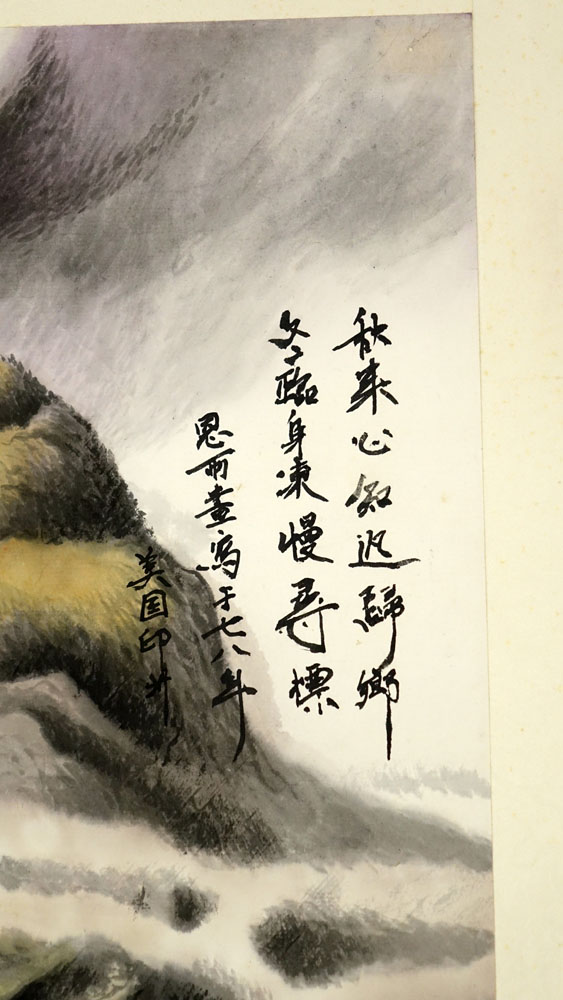 秋来心知迟歸鄉
冬臨身凍慢尋標
恩而畫寫于七八年
美国印州